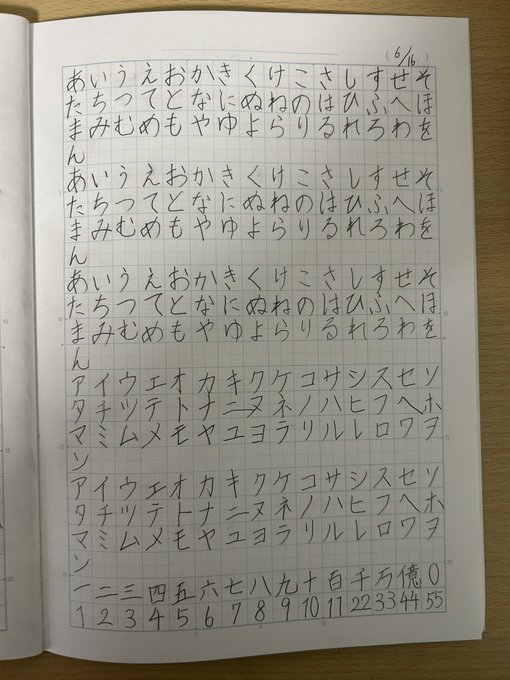 (6/16)
あいうえおかきくけこさしすせそ
たちつてとなにぬねのはひふへほ
まみむめもやゆよらりるれろわを
ん
あいうえおかきくけこさしすせそ
たちつてとなにぬねのはひふへほ
まみむめもやゆよらりるれろわを
ん
あいうえおかきくけこさしすせそ
たちつてとなにぬねのはひふへほ
まみむめもやゆよらりるれろわを
ん
アイウエオカキクケコサシスセソ
タチツテトナニヌネノハヒフヘホ
マミムメモヤユヨラリルレロワヲ
ン
アイウエオカキクケコサシスセソ
タチツテトナニヌネノハヒフヘホ
マミムメモヤユヨラリルレロワヲ
ン
一二三四五六七八九十百千万億0
1 2 3 4 5 6 7 8 9 10 11 22 33 44 55